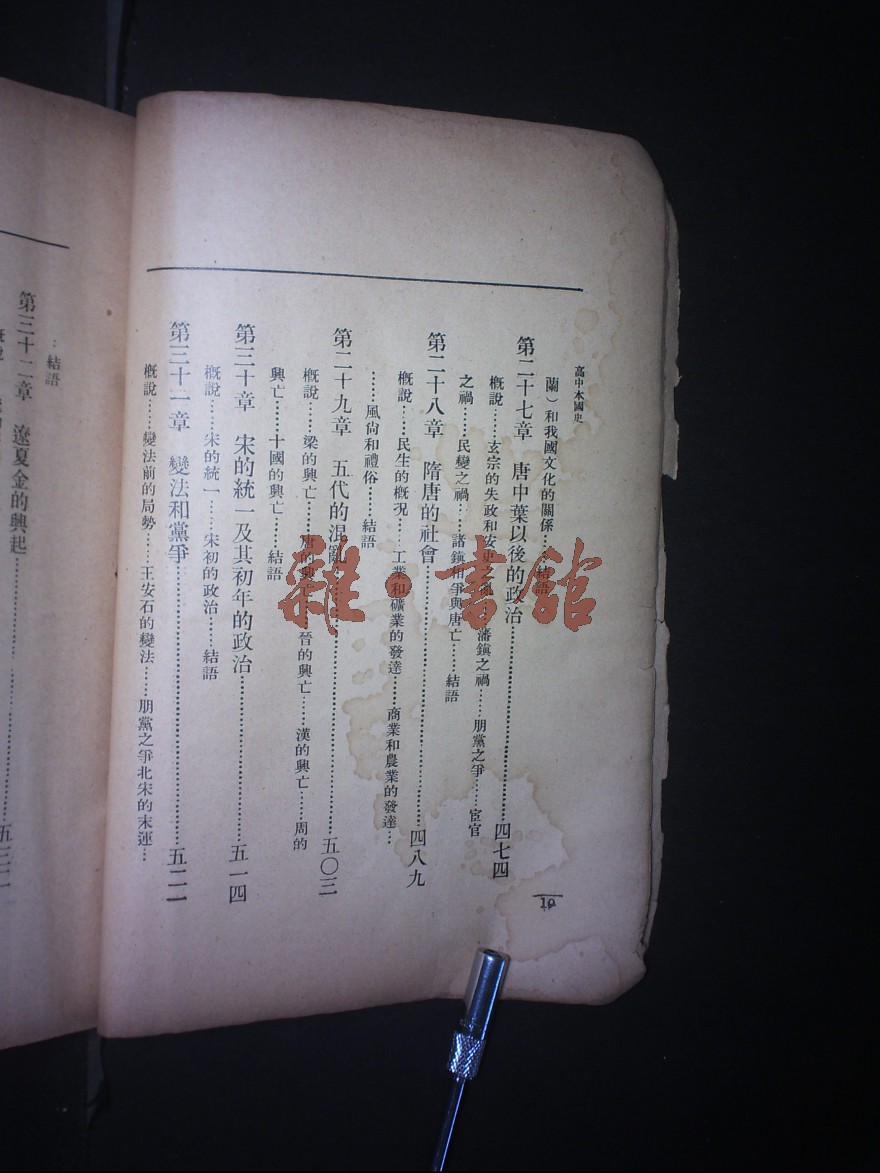 高中本國史
蘭）和我國文化的關係……結語
第二十七章 唐中葉以後的政治……四七四
概說……玄宗的失政和安史之亂……藩鎮之禍……朋黨之爭……宦官
之禍……民變之禍……諸鎮相爭與唐亡……結語
第二十八章 隋唐的社會……四八九
概說……民生的概况……工業和礦業的發達……商業和農業的發達…
……風尙和禮俗……結語
第二十九章 五代的混亂……五〇三
概說……梁的興亡……唐的興亡……晉的興亡……漢的興亡……周的
興亡……十國的興亡……結語
第三十章 宋的統一及其初年的政治……五一四
概說……宋的統一……宋初的政治……結語
第三十一章 變法和黨爭……五二一
概說……變法前的局勢……王安石的變法……朋黨之爭北宋的末運…
：結語
第三十二章 遼夏金的興起
雜·書館